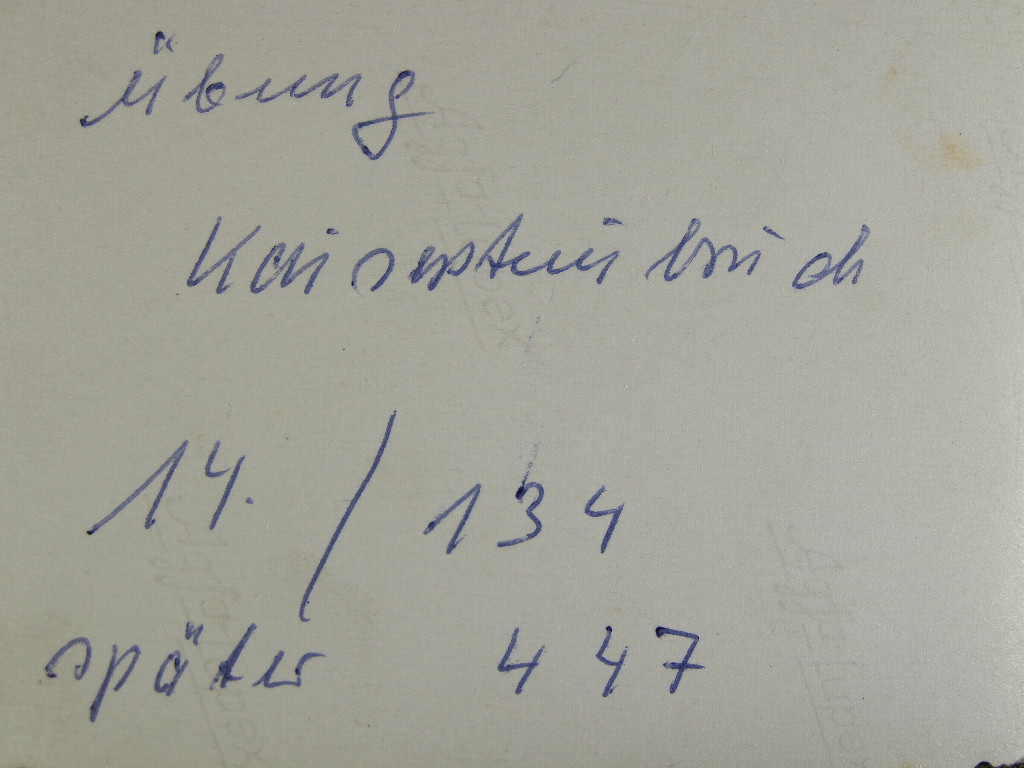 Übung
Kaisersteinbruch
14. / 134
später 447